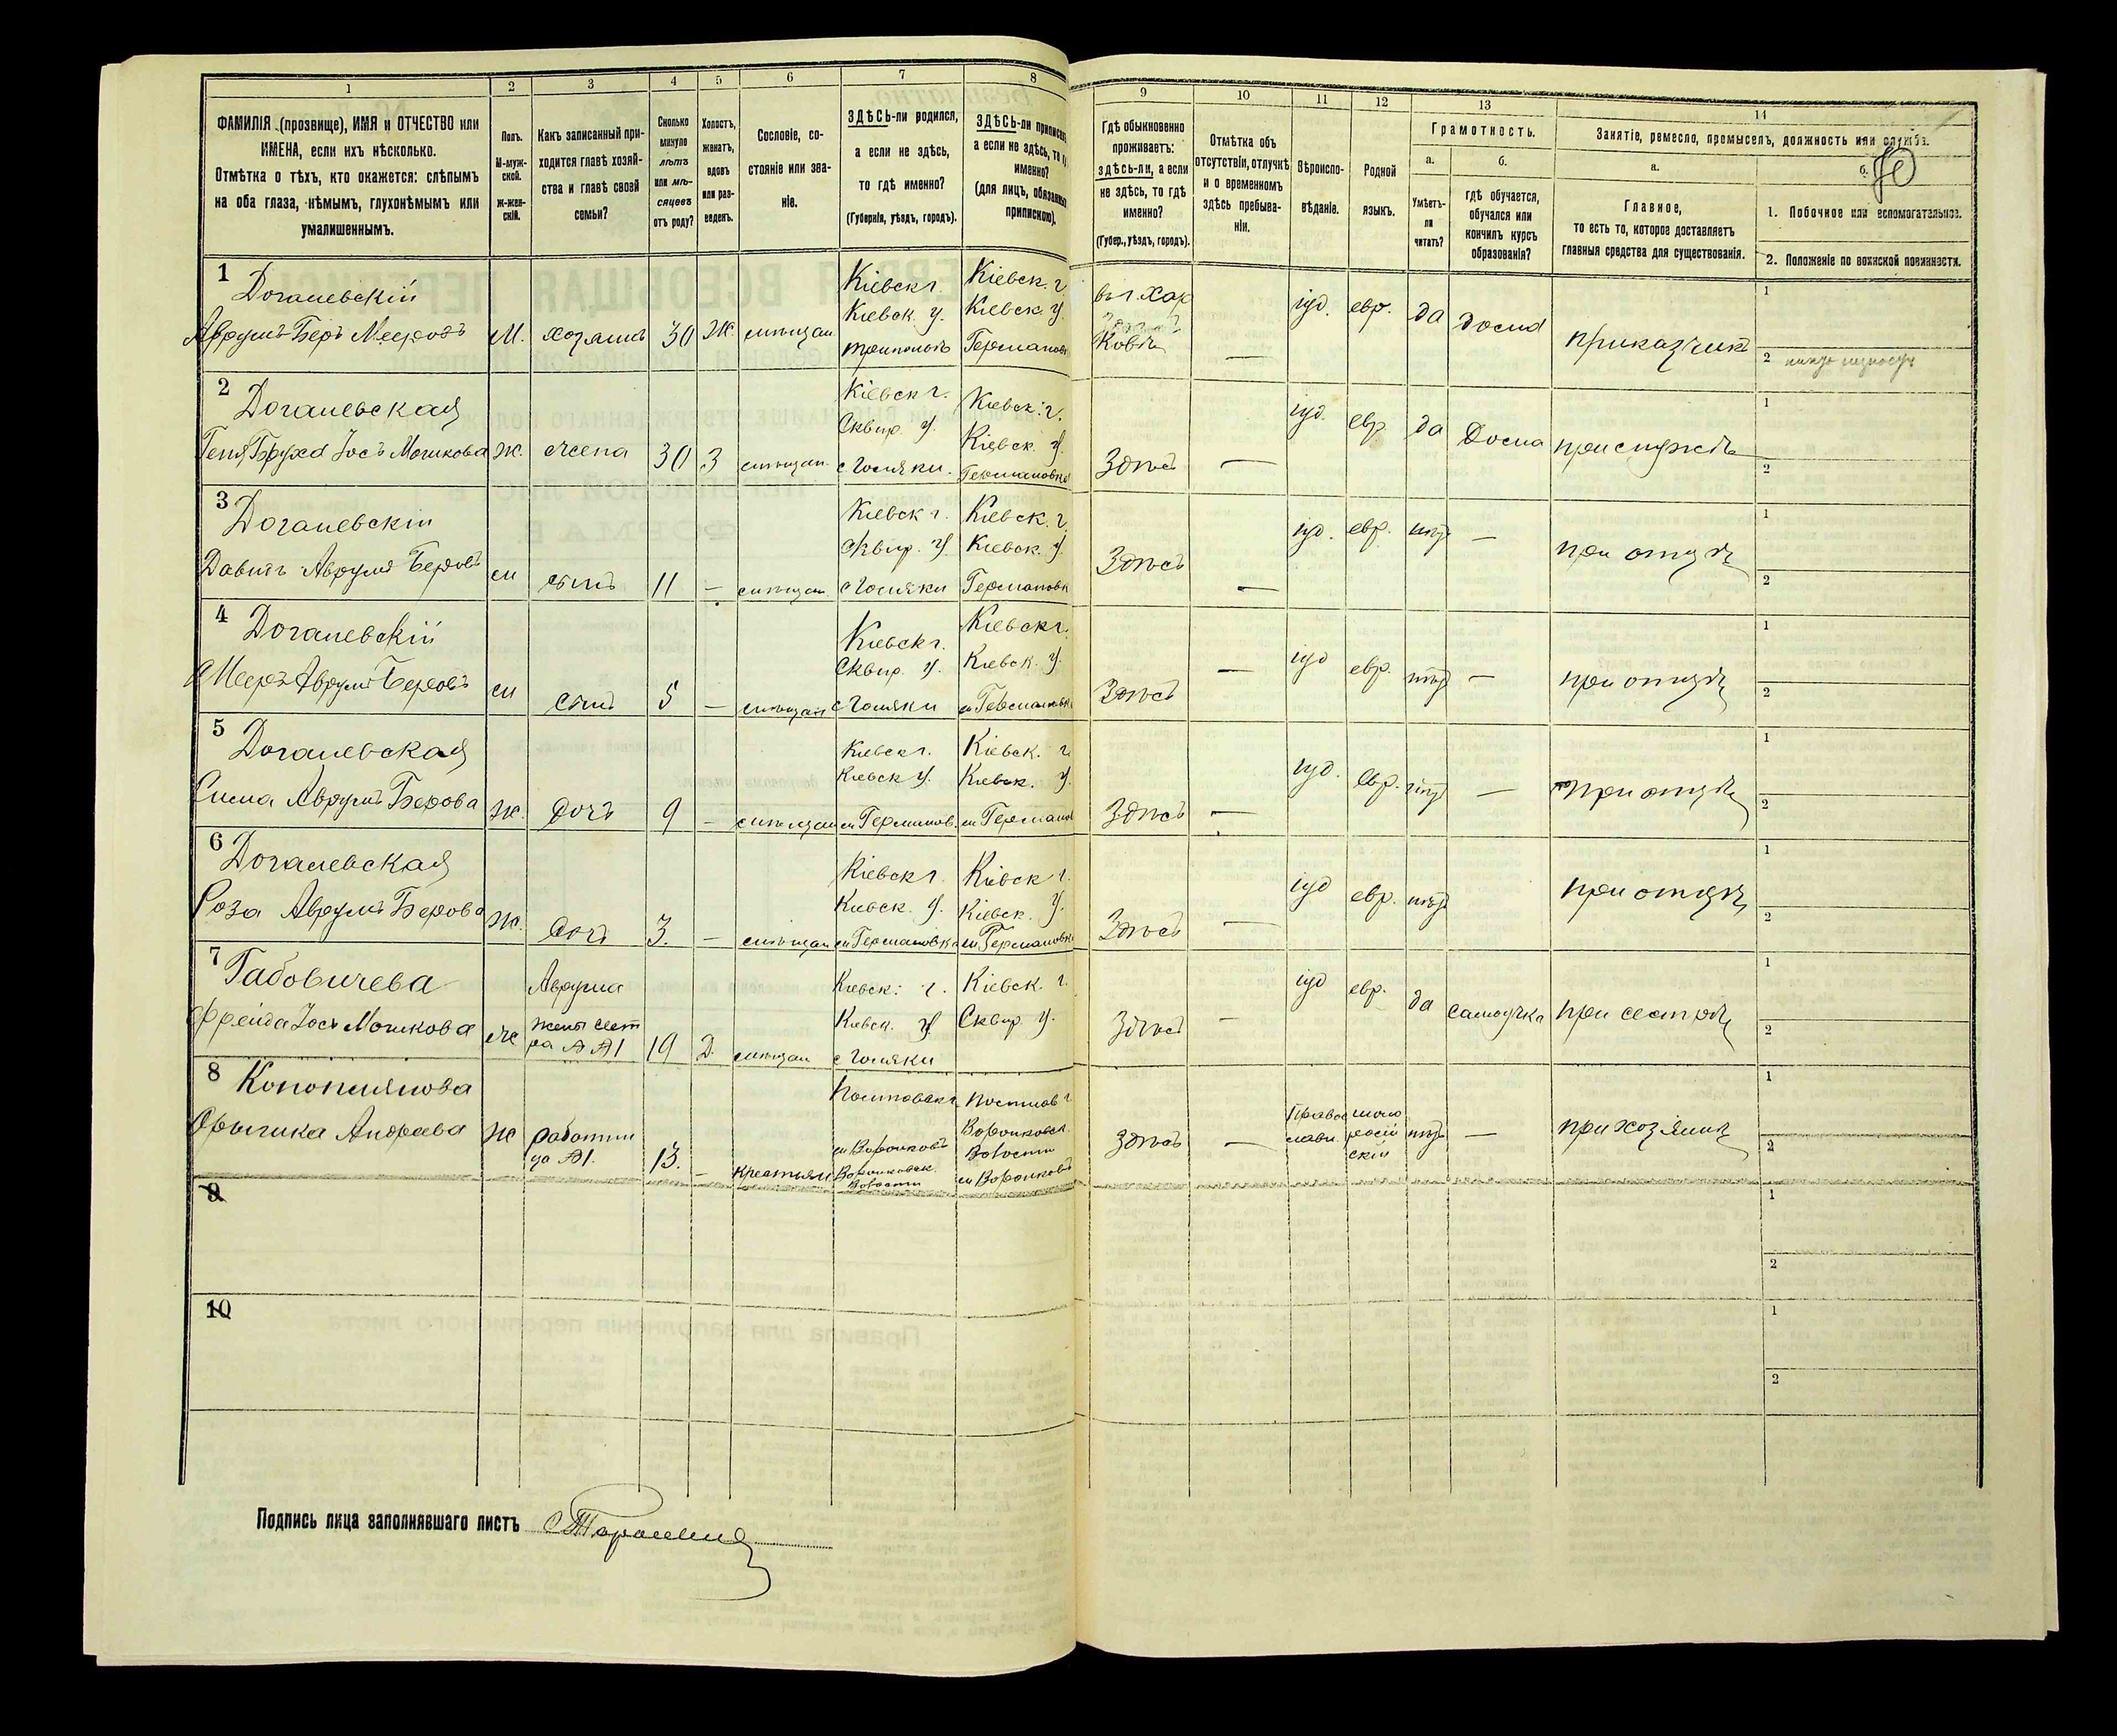 1 2 3 4 5 6 7 8
ФАМИЛІЯ (прозвище), ИМЯ и ОТЧЕСТВО или
ИМЕНА, если ихъ нѣсколько.
Отмѣтка о тѣхъ, кто окажется: слѣпымъ
на оба глаза, нѣмымъ, глухонѣмымъ или
умалишеннымъ.
Полъ.
М-муж-
ской.
Ж-жен-
скій.
Какъ записанный при-
ходится главѣ хозяй-
ства и главѣ своей
семьи?
Сколько
минуло
лѣтъ
или мѣ-
сяцевъ
отъ роду?
Холостъ,
женатъ,
вдовъ
или раз-
веденъ.
Сословіе, со-
стояніе или зва-
ніе.
ЗДѢСЬ-ли родился,
а если не здѣсь,
то гдѣ именно?
(Губернія, уѣздъ, городъ).
ЗДѢСЬ-ли приписанъ
а если не здѣсь, то гдѣ
именно?
(для лицъ, обязанныхъ
припискою).
9 10 11 12 13 14
Гдѣ обыкновенно
проживаетъ:
здѣсь-ли, а если
не здѣсь, то гдѣ
именно?
(Губер., уѣздъ, городъ).
Отмѣтка объ
отсутствіи, отлучкѣ
и о временномъ
здѣсь пребыва-
ніи.
Вѣроиспо-
вѣданіе.
Родной
языкъ.
Грамотность.
а.
Умѣетъ-
ли
читать?
б.
гдѣ обучается,
обучался или
кончилъ курсъ
образованія?
Занятіе, ремесло, промыселъ, должность или служба.
а.
Главное,
то есть то, которое доставляетъ
главныя средства для существованія.
б.
1. Побочное или вспомогательное.
2. Положеніе по воинской повинности.
1
Аврумъ-Беръ Мееровъ
М. хозяинъ 30 Ж. мѣщан
Кіевск г.
Кіевск. у.
Триполье
Кіевск. г
Кіевск. у.
Германовк
іуд. евр. да дома приказчикъ
1
2
2
Геня Бруха Іосъ Мошкова
ж. жена 30 З мѣщан.
Кіевск г.
Сквир у.
Кіевск. г.
Кіевск. у.
Германовка
Здѣсь — іуд. евр. да Дома при мужѣ
1
2
3
Давидъ Аврумъ Беровъ
м сынъ 11 — мѣщан
Кіевск г.
Сквир. у
Кіевск. г.
Кіевск. у.
Германовк
Здѣсь — іуд. евр. нѣтъ — при отцѣ
1
2
4
Мееръ Аврумъ Беровъ
м сынъ 5 — мѣщан
Кіевск г.
Сквир. у.
Кіевск г.
Кіевск. у.
м Германовк
Здѣсь — іуд евр. нѣтъ — при отцѣ
1
2
5
Сима Аврумъ Берова
ж. дочь 9 — мѣщан
Кіевск г.
Кіевск у.
м Германов.
Кіевск. г
Кіевск. у.
м Германов
Здѣсь — іуд. евр. нѣтъ — при отцѣ
1
2
6
Роза Аврумъ Берова
ж. дочь 3. — мѣщан
Кіевск г.
Кіевск. у.
м Германовка
Кіевск г.
Кіевск. у.
м Германовка
Здѣсь — іуд евр. нѣтъ при отцѣ
1
2
7 Габовичева
Фрейда Іось Мошкова
Аврума
жены сест
ра
19 Д. мѣщан
Кіевск. г.
Кіевск. у.
Кіевск. г.
Сквир. у.
Здѣсь — іуд евр. да самоучка при сестрѣ
1
2
8
Андреева
ж работни
ца
13. — крестьян
м Воронковъ
Воронковск.
Волости
Полтав г
Воронковск.
Волости
м Воронковъ
Здѣсь —
Право
слав.
мало
росій
скій
нѣтъ — при хозяинѣ
1
2
9
1
2
10
1
2
Подпись лица заполнявшаго листъ